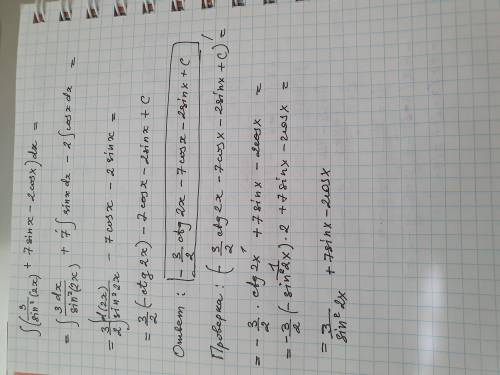 ∫(3/sin²(2x) + 7sinx - 2cosx)dx =
= ∫ 3dx/sin²(2x) + 7∫sinxdx - 2∫cosxdx =
= 3/2 ∫ d(2x)/sin²2x - 7cosx - 2sinx =
= 3/2 (-ctg2x) - 7cosx - 2sinx + C
Ответ: (-3/2 ctg2x - 7cosx - 2sinx + C
Проверка: (-3/2 ctg2x - 7cosx - 2sinx + C)' =
= -3/2 · ctg2x' + 7sinx - 2cosx =
= -3/2 (-1/sin²2x) · 2 + 7sinx - 2cosx =
= 3/sin²2x + 7sinx - 2cosx